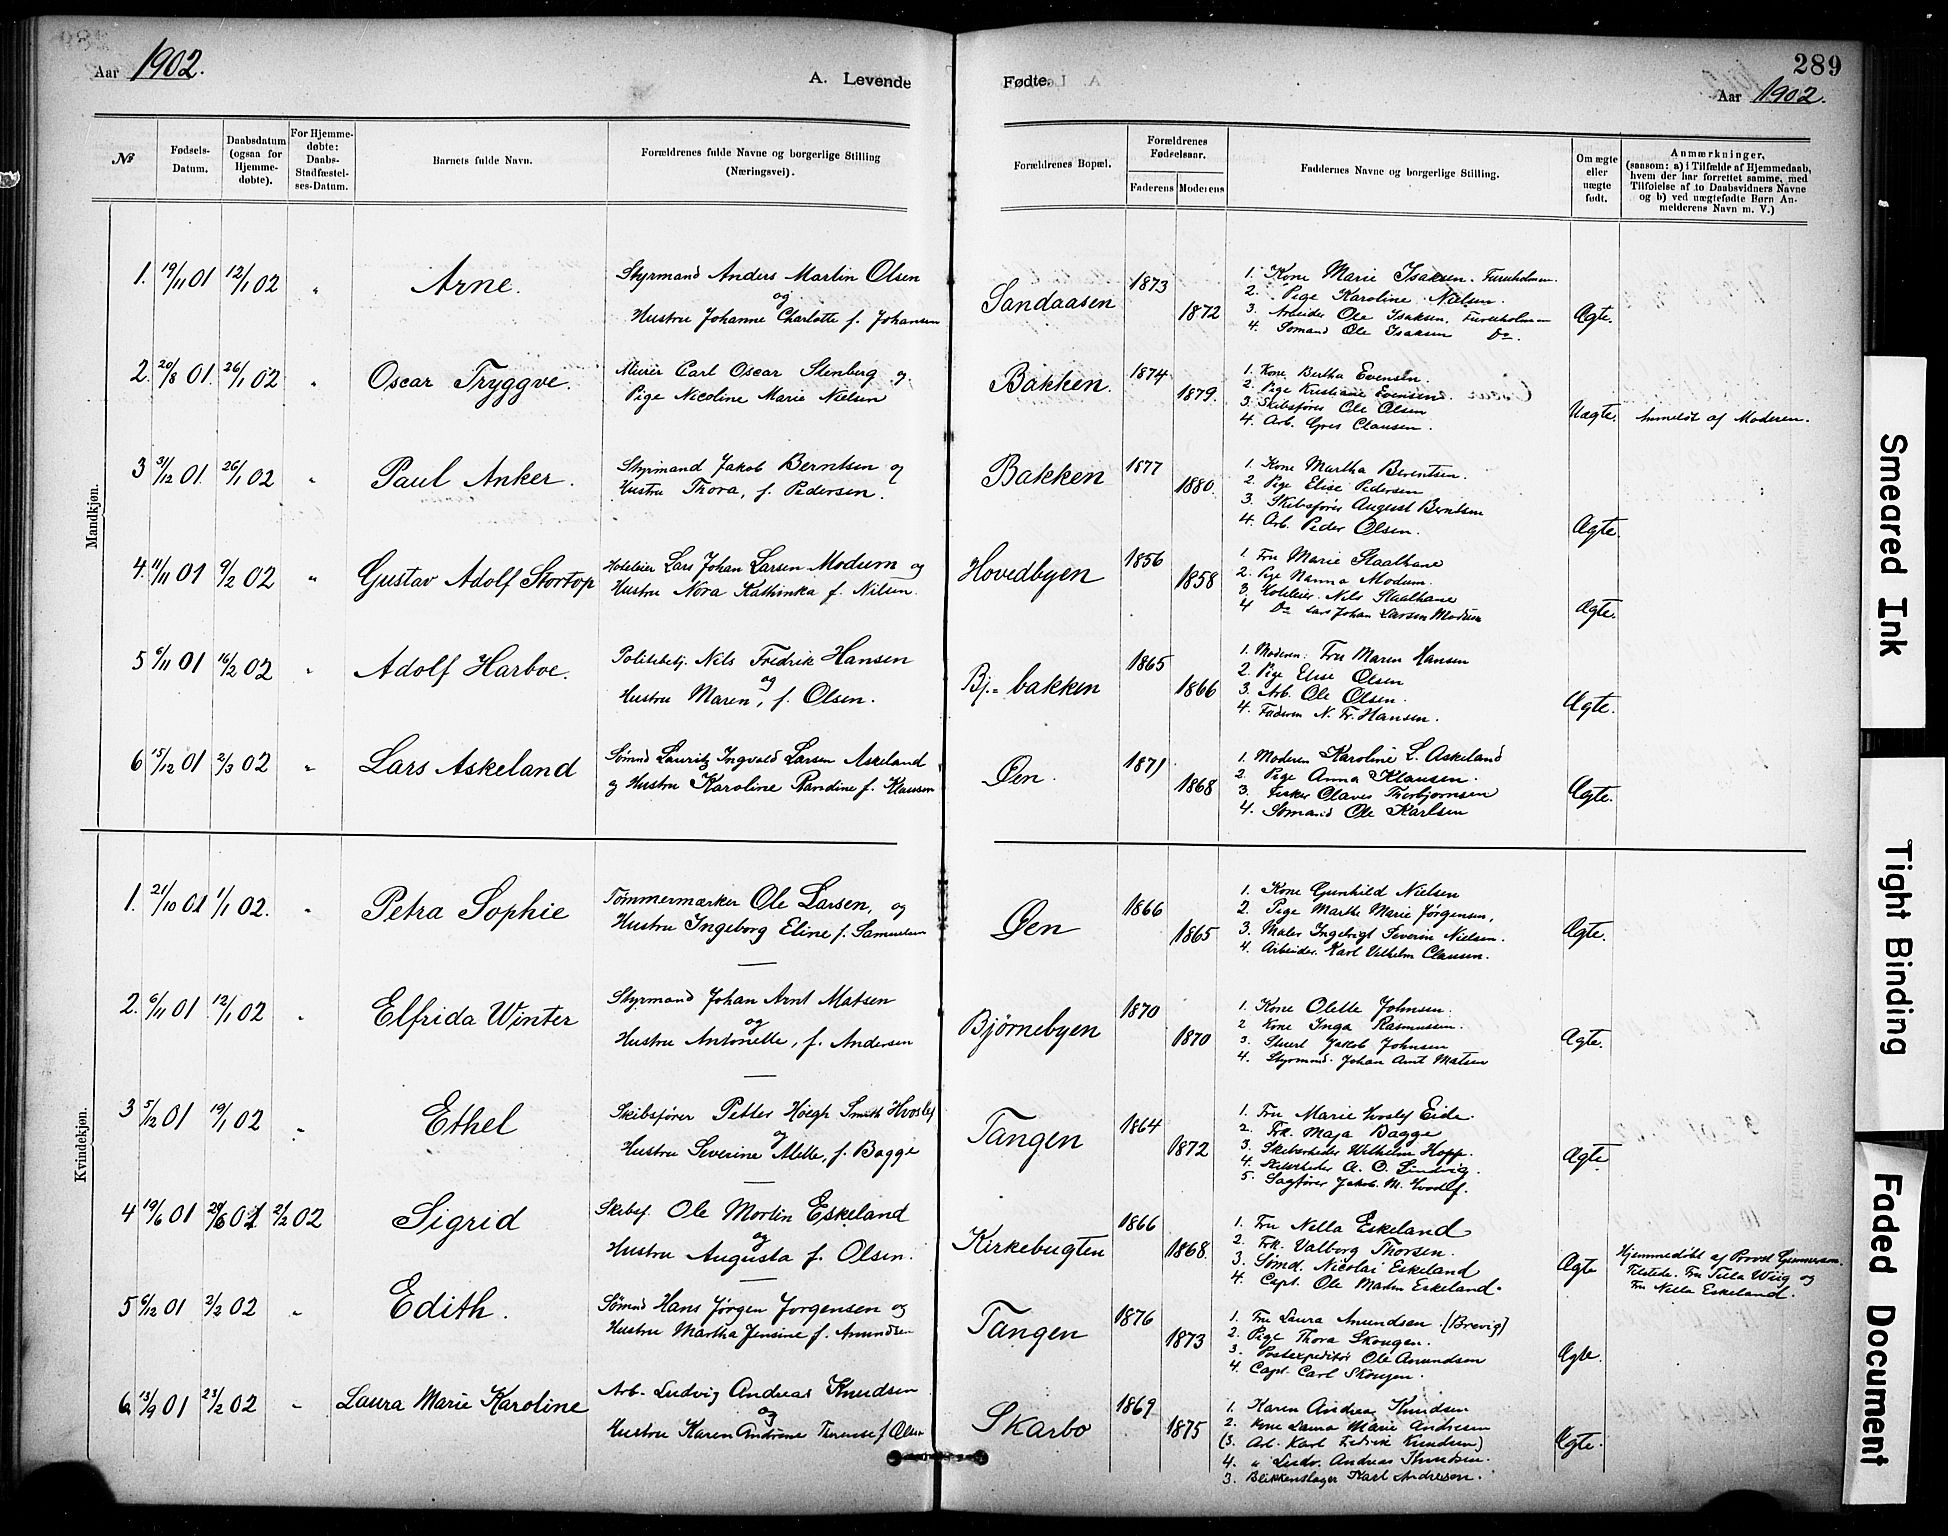 289
Aar 1902.
A. Levende Fødte.
Aar 1902.
№
Fødsels-Datum.
Daabsdatum (ogsaa for Hjemme-døbte).
For Hjemme-døbte: Daabs-Stadfæstel-ses-Datum.
Barnets fulde Navn.
Forældrenes fulde Navne og borgerlige Stilling (Næringsvei).
Forældrenes Bopæl.
Forældrenes Fødselsaar.
Faderens Moderens
Faddernes Navne og borgerlige Stilling.
Om ægte eller uægte født.
Anmærkninger,
(saasom: a) i Tilfælde af Hjemmedaab,
hvem der har forrettet samme, med
Tilføielse af to Daabsvidners Navne
og b) ved uægtefødte Børn An-
melderens Navn m. V.)
Mandkjøn.
1. 19/11 01 12/1 02 " Arne.
Styrmand Anders Martin Olsen
og
Hustru Johanne Charlotte f. Johansen
Sandaasen 1873 1872
1. Kone Marie Isaksen. Furuholmen.
2. Pige Karoline Nielsen.
3. Arbeider Ole Isaksen, Furuholmen
4. Sømand Ole Isaksen Do.
Ægte.
2. 20/8 01. 26/1 02 " Oscar Tryggve.
Murer Carl Oscar Stenberg og
Pige Nicoline Marie Nielsen
Bakken. 1874 1879.
1. Kone Bertha Evensen.
2. Pige Kristiane Evensen.
3. Skibsfører Ole Olsen
4. Arb. Clausen.
Uægte. Anmeldt af Moderen.
3 31/12 01. 26/1 02 " Paul Anker.
Styrmand Jakob Berntsen og
Hustru Thora, f. Pedersen.
Bakken 1877 1880.
1. Kone Martha Berentsen.
2. Pige Elise Pedersen
3. Skibsfører August Berntsen
4. Arb. Peder Olsen.
Ægte.
4. 11/11 01 9/2 02 " Gustav Adolf Stortop
Hoteleier Lars Johan Larsen Modum og
Hustru Nora Kathinka f. Nilsen.
Hovedbyen 1856 1858
1. Fru Marie Staalhane
2. Pige Nanna Modum.
3. Hoteleier Nils Staalhane
4 Do Lars Johan Larsen Modum
Ægte.
5 6/11 01 16/2 02 " Adolf Harboe.
Politibetj. Nils Fredrik Hansen
og
Hustru Maren, f. Olsen.
Bj.-bakken 1865 1866
1. Moderen: Fru Maren Hansen
2. Pige Elise Olsen
3. Arb. Ole Olsen.
4. Faderen N. Fr. Hansen.
Ægte.
6 15/12 01 2/3 02 " Lars Askeland
Sømnd Lauritz Ingvald Larsen Askeland
og Hustru Karoline Randine f. Klausen
Øen. 1871 1868
1. Moderen Karoline L. Askeland
2. Pige Anna Klausen.
3. Fisker Olaves Thorbjørnsen
4. Sømand Ole Karlsen
Ægte.
Kvindekjøn.
1. 21/10 01 1/1 02. " Petra Sophie
Tømmermærker Ole Larsen, og
Hustru Ingeborg Eline f. Samuelsen
Øen 1866 1865
1. Kone Gunhild Nielsen
2. Pige Marthe Marie Jørgensen,
3. Maler Ingebrigt Severin Nielsen.
4. Arbeider Karl Vilhelm Clausen.
Ægte.
2. 6/11 01 12/1 02 " Elfrida Winter
Styrmand Johan Arnt Matsen
og
Hustru Antonette, f. Andersen
Bjørnebyen 1870 1870
1. Kone Olette Johnsen.
2 Kone Inga Rasmussen.
3. Stuert Jakob Johnsen
4. Styrmand. Johan Arnt Matsen
Ægte.
3 5/12 01 19/1 02 " Ethel
Skibsfører Petter Høegh Smith Hvoslef
og
Hustru Severine Mette, f. Bagge
Tangen 1864 1872
1. Fru Marie Hvoslef Eide.
2. Frk. Maja Bagge
3. Skibsrheder Wilhelm Hopp.
4. Skibsrheder A. O. Lindvig.
5. Sagfører Jakob. M. Hvoslef.
Ægte
4 19/6 01 29/6 01 2/2 02 Sigrid
Skibsf. Ole Martin Eskeland
og
Hustru Augusta f. Olsen.
Kirkebugten 1866 1868.
1. Fru Nella Eskeland
2. Frk. Valborg Thorsen.
3. Sømd. Nicolai Eskeland
4. Capt. Ole Martin Eskeland.
Ægte
Hjemmedøbt af Provst Gunnersen.
Tilstede. Fru Tella Wiig og
Fru Nella Eskeland.
5 6/12 01 2/2 02 " Edith.
Sømnd Hans Jørgen Jorgensen og
Hustru Martha Jensine f. Amundsen
Tangen 1876 1873
1. Fru Laura Amundsen (Brevig)
2. Pige Thora Skougen.
3. Postexpeditør Ole Amundsen
4. Capt. Carl Skougen.
Ægte.
6 13/9 01 23/2 02 " Laura Marie Karoline
Arb. Ludvig Andreas Knudsen
og
Hustru Karen Andrine Thomine f. Olsen
Skarbo 1869 1875
1. Karen Andrea Knudsen
2. Kone Laura Marie Andresen
(3. Arb. Karl Fedrik Knudsen)
4. " Ludv. Andreas Knudsen.
3. Blikkenslager Karl Andresen.
Ægte.
Smeared Ink
Tight Binding
Faded Document